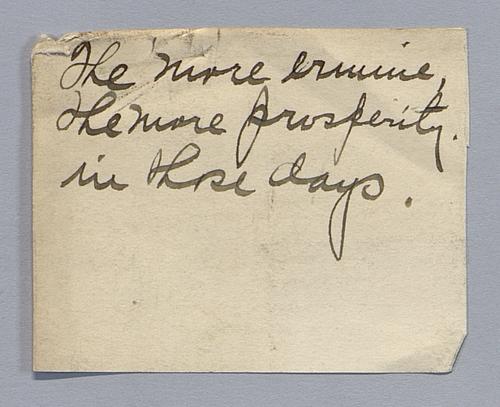 The more ermine,
the more prosperity.
in those days.